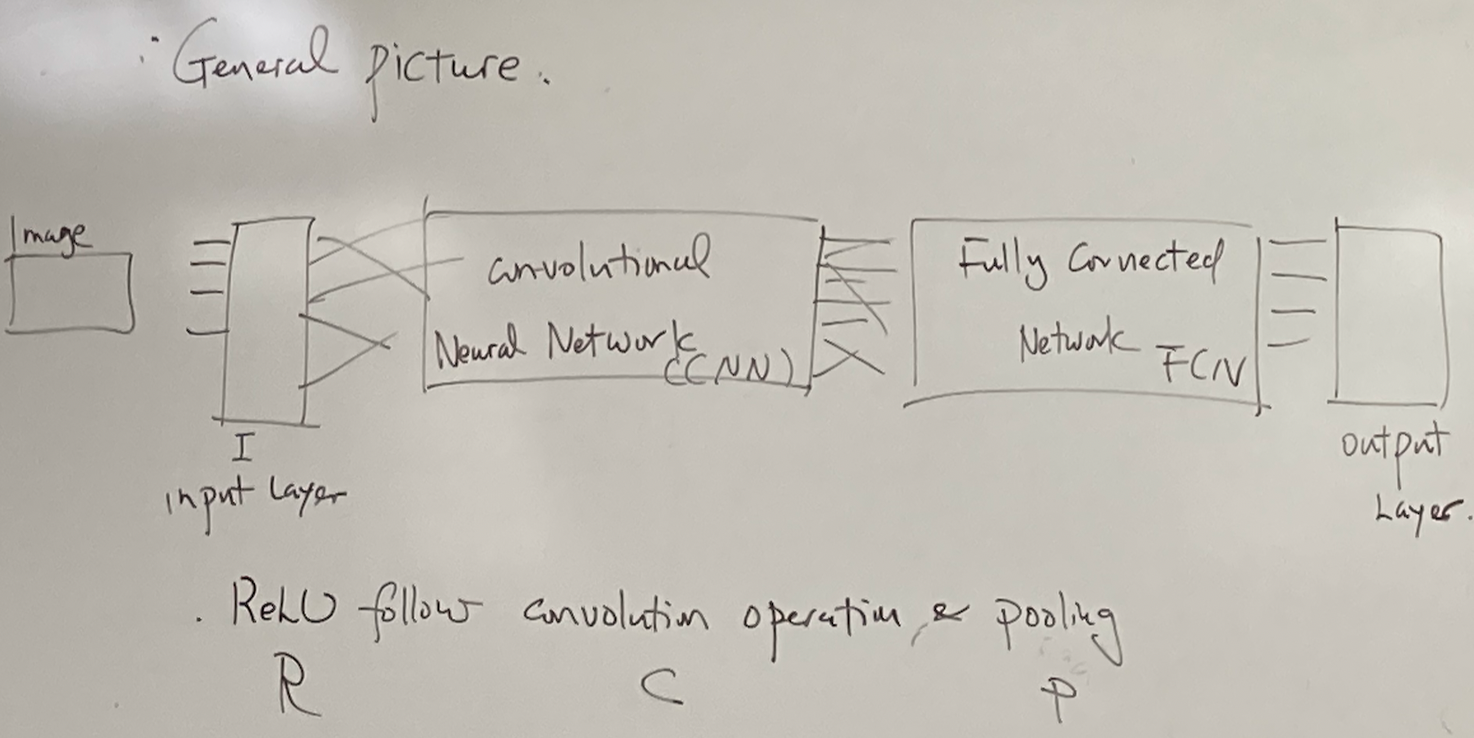 : General picture.
Image
Convolutional
Neural Network
(CNN)
Fully Connected
Network FCN
I
input Layer
output
Layer.
. ReLU follow convolution operation, & pooling
R C P